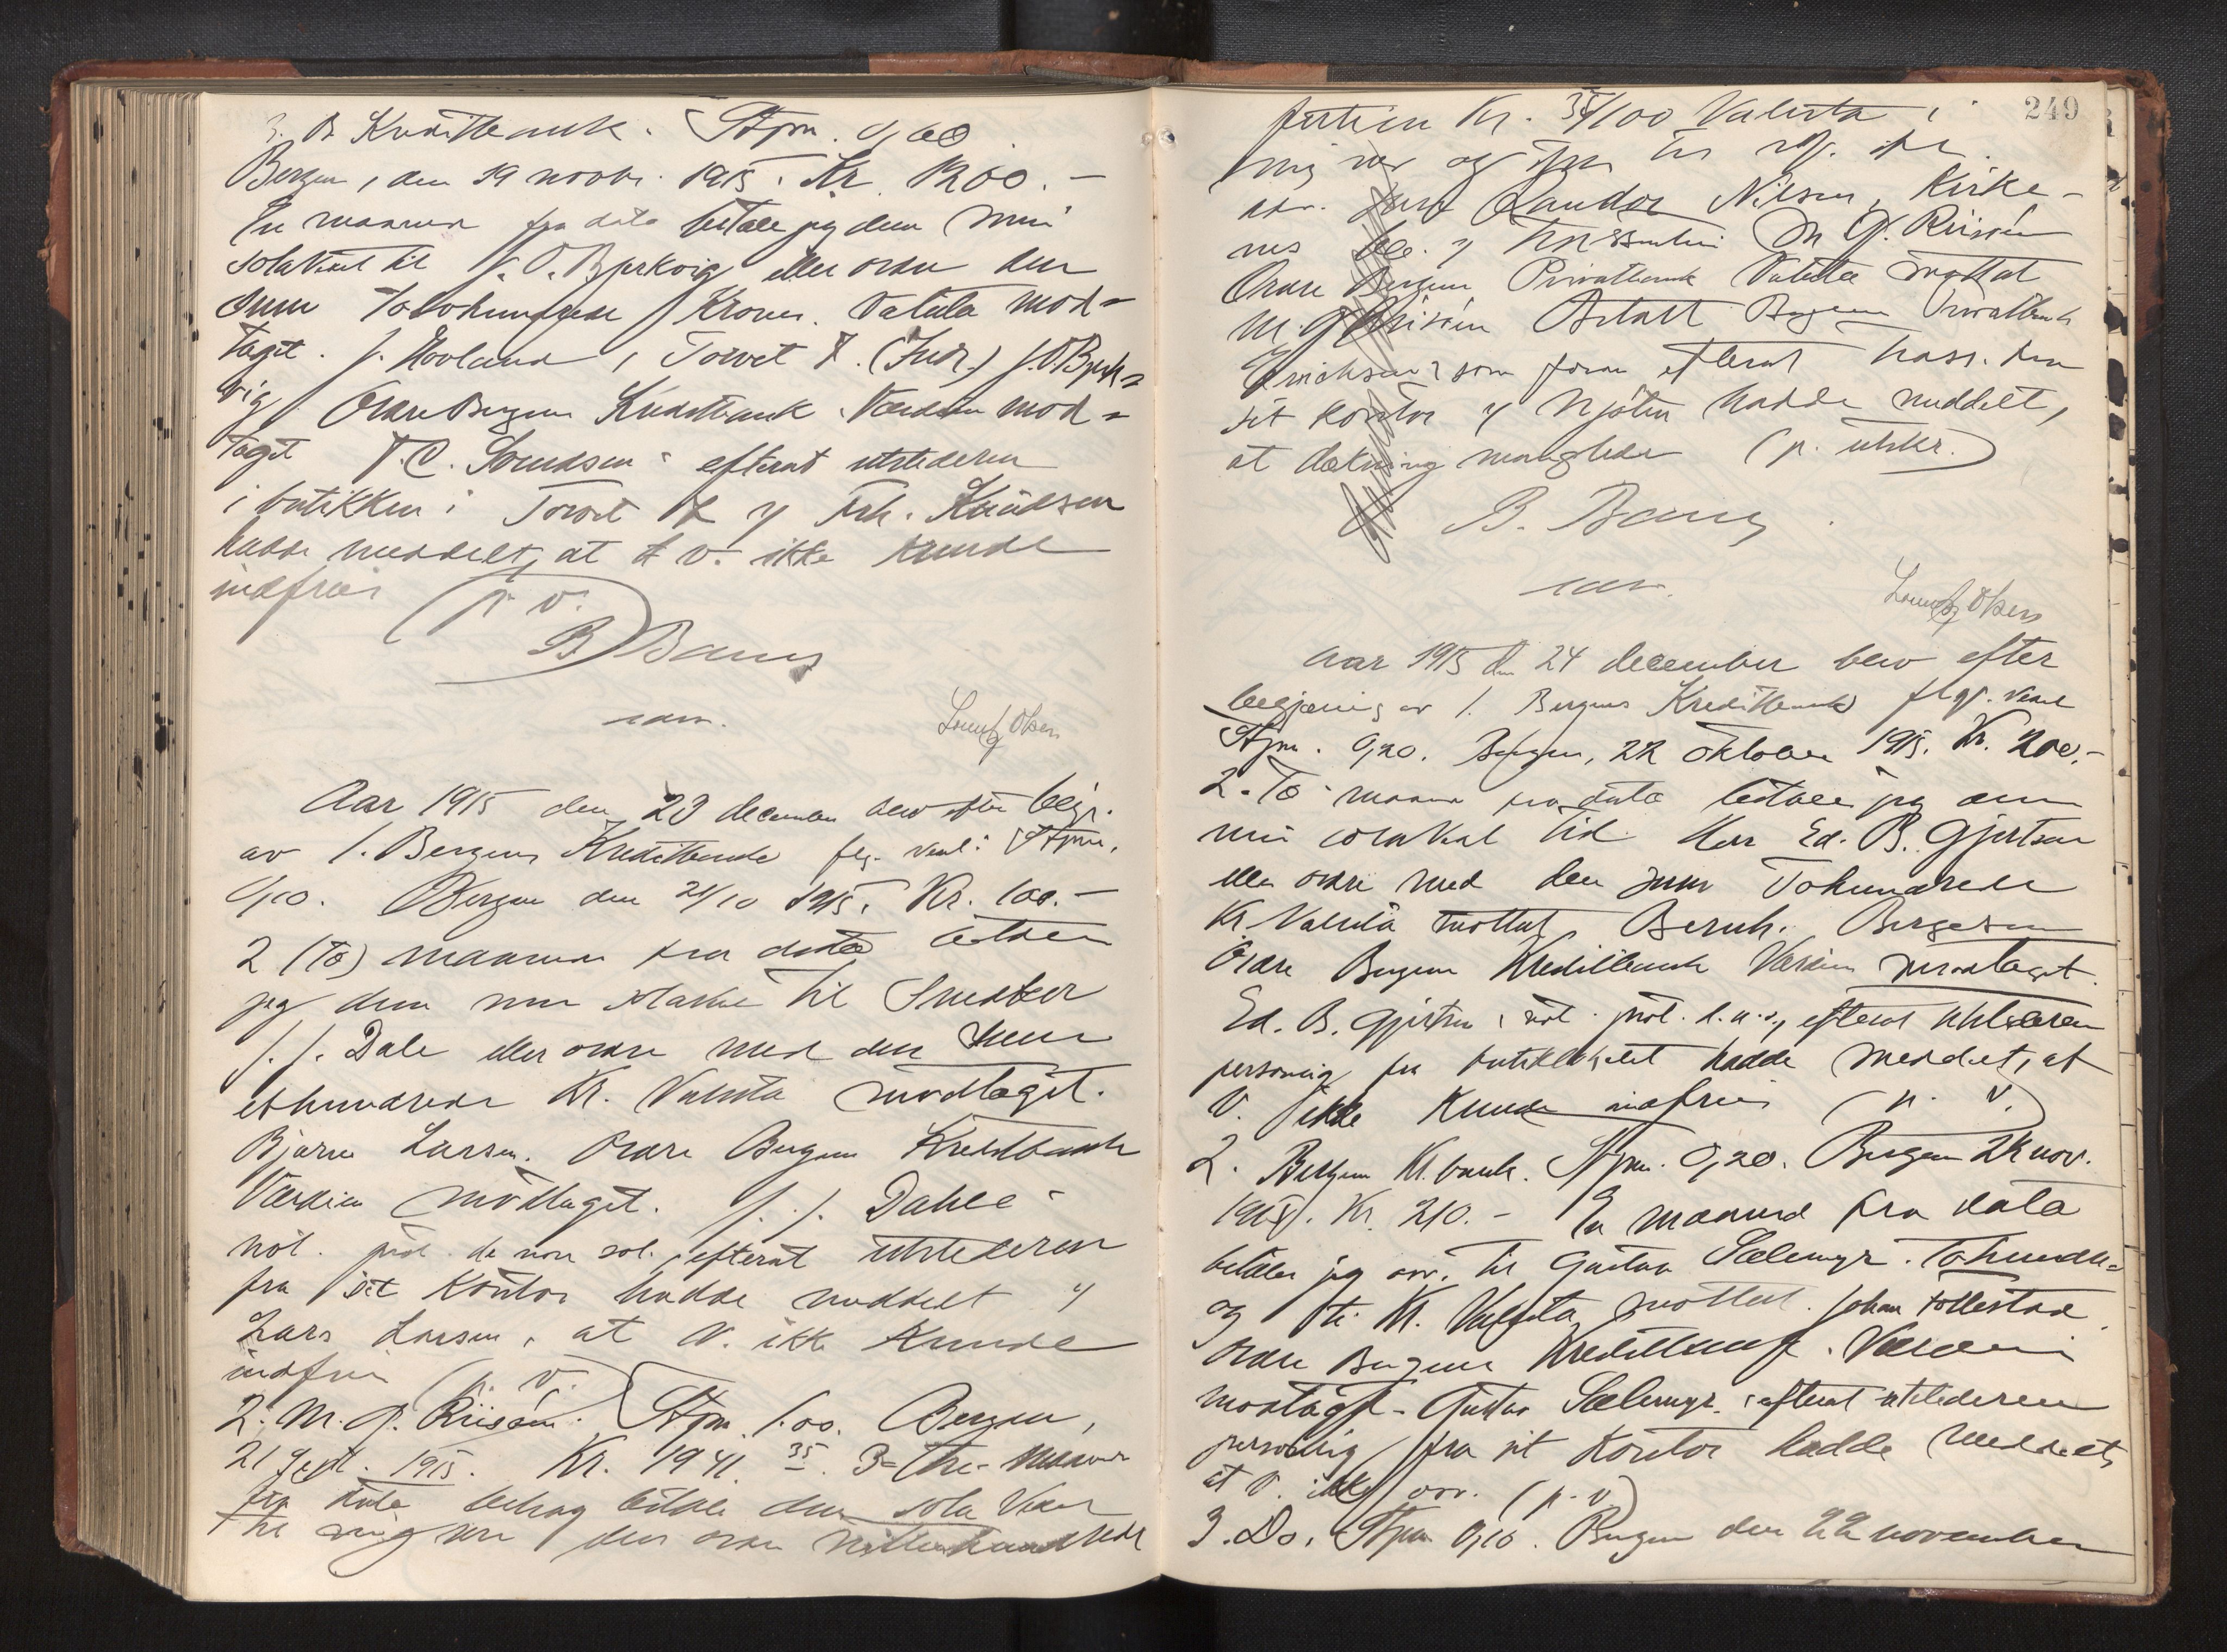 B. Kreditbank. Stpm. 0,60
Bergen, den 19 novbr. 1915. Kr. 1200.-
En maaned fra dato betaler jeg denne min
solaveksel til J. O. Bjerkvig eller ordre den
sum Tolvhundrede Kroner. Valuta mod=
taget. J. Hovland, Torvet 7. (Indr.) J. O. Bjerk=
vig Ordre Bergens Kreditbank. Værdien mod=
taget T. C. Svendsen efterat utstederen
i butikken i Torvet 7 v/ Frk. Knudsen
hadde meddelt, at v. ikke kunde
indfries (p. v.)
B. Bang
Lauritz Olsen
Aar 1915 den 23 december blev efter begj.
av 1. Bergens Kreditbank flg. veksl: Stpm.
0,10. Bergen den 21/10 1915. Kr. 100.-
2 (To) maaneder fra dato betaler
jeg denne min solaveksel til Snedker
J. J. Dale eller ordre med den sum
ethundrede Kr. Valuta modtaget.
Bjarne Larsen. Ordre Bergens Kreditbank
Værdien modtaget. J. J. Dahle
not. prot. de non sol., efterat utstederen
fra sit kontor hadde meddelt v/
Lars Larsen, at v. ikke kunde
indfries (p. v.)
2. M. G. Riisøen. Stpm. 1.00. Bergen,
21 Sept. 1915. Kr. 1941.35. 3- Tre- maaneder
fra dato behag betale denne sola veksel
til mig selv eller ordre Nittenhundrede
249
førtien Kr. 35/100 Valuta i
mig selv og
Sandor Nilsen, Kirke-
nes M. G. Riisøen
Ordre Bergens Privatbank Valuta mottat
M. G. Riisøen Betalt Bergens Privatbank
Erichsen som foran efterat trass. fra
sit kontor v/ hadde meddelt,
at dækning manglede (p. utskr.)
B. Bang
Lauritz Olsen
Aar 1915 den 24 december blev efter
begjæring av 1. Bergens Kreditbank flg. veksl
Stpm. 0,20. Bergen, 22 oktober 1915. Kr. 200.-
2- To- maaneder fra dato betaler jeg denne
min solaveksel til Herr Ed. B. Gjertsen
eller ordre med den sum Tohundrede
Kr. Valuta mottat, Bernh. Birgesen
Ordre Bergens Kreditbank Værdien modtaget.
Ed. B. Gjertsen, not. prot. d. n. s., efterat utstederen
personlig fra butiklokalet hadde meddelt, at
V. ikke kunde indfries (p. v.)
2. Bergens Kr.bank. Stpm. 0,20. Bergen 22 nov.
1915. Kr. 210.- En maaned fra dato
betaler jeg osv. til Gustav Sælemyr. Tohundre=
og ti Kr. Valuta mottat. Johan Tollestad
Ordre Bergens Kreditbank. Værdien
modtaget- Gustav Sælemyr, efterat utstederen
personlig fra sit kontor hadde meddelt,
at v. ikke osv. (p. v.)
3. Do. Stpm. 0,10. Bergen den 22 november